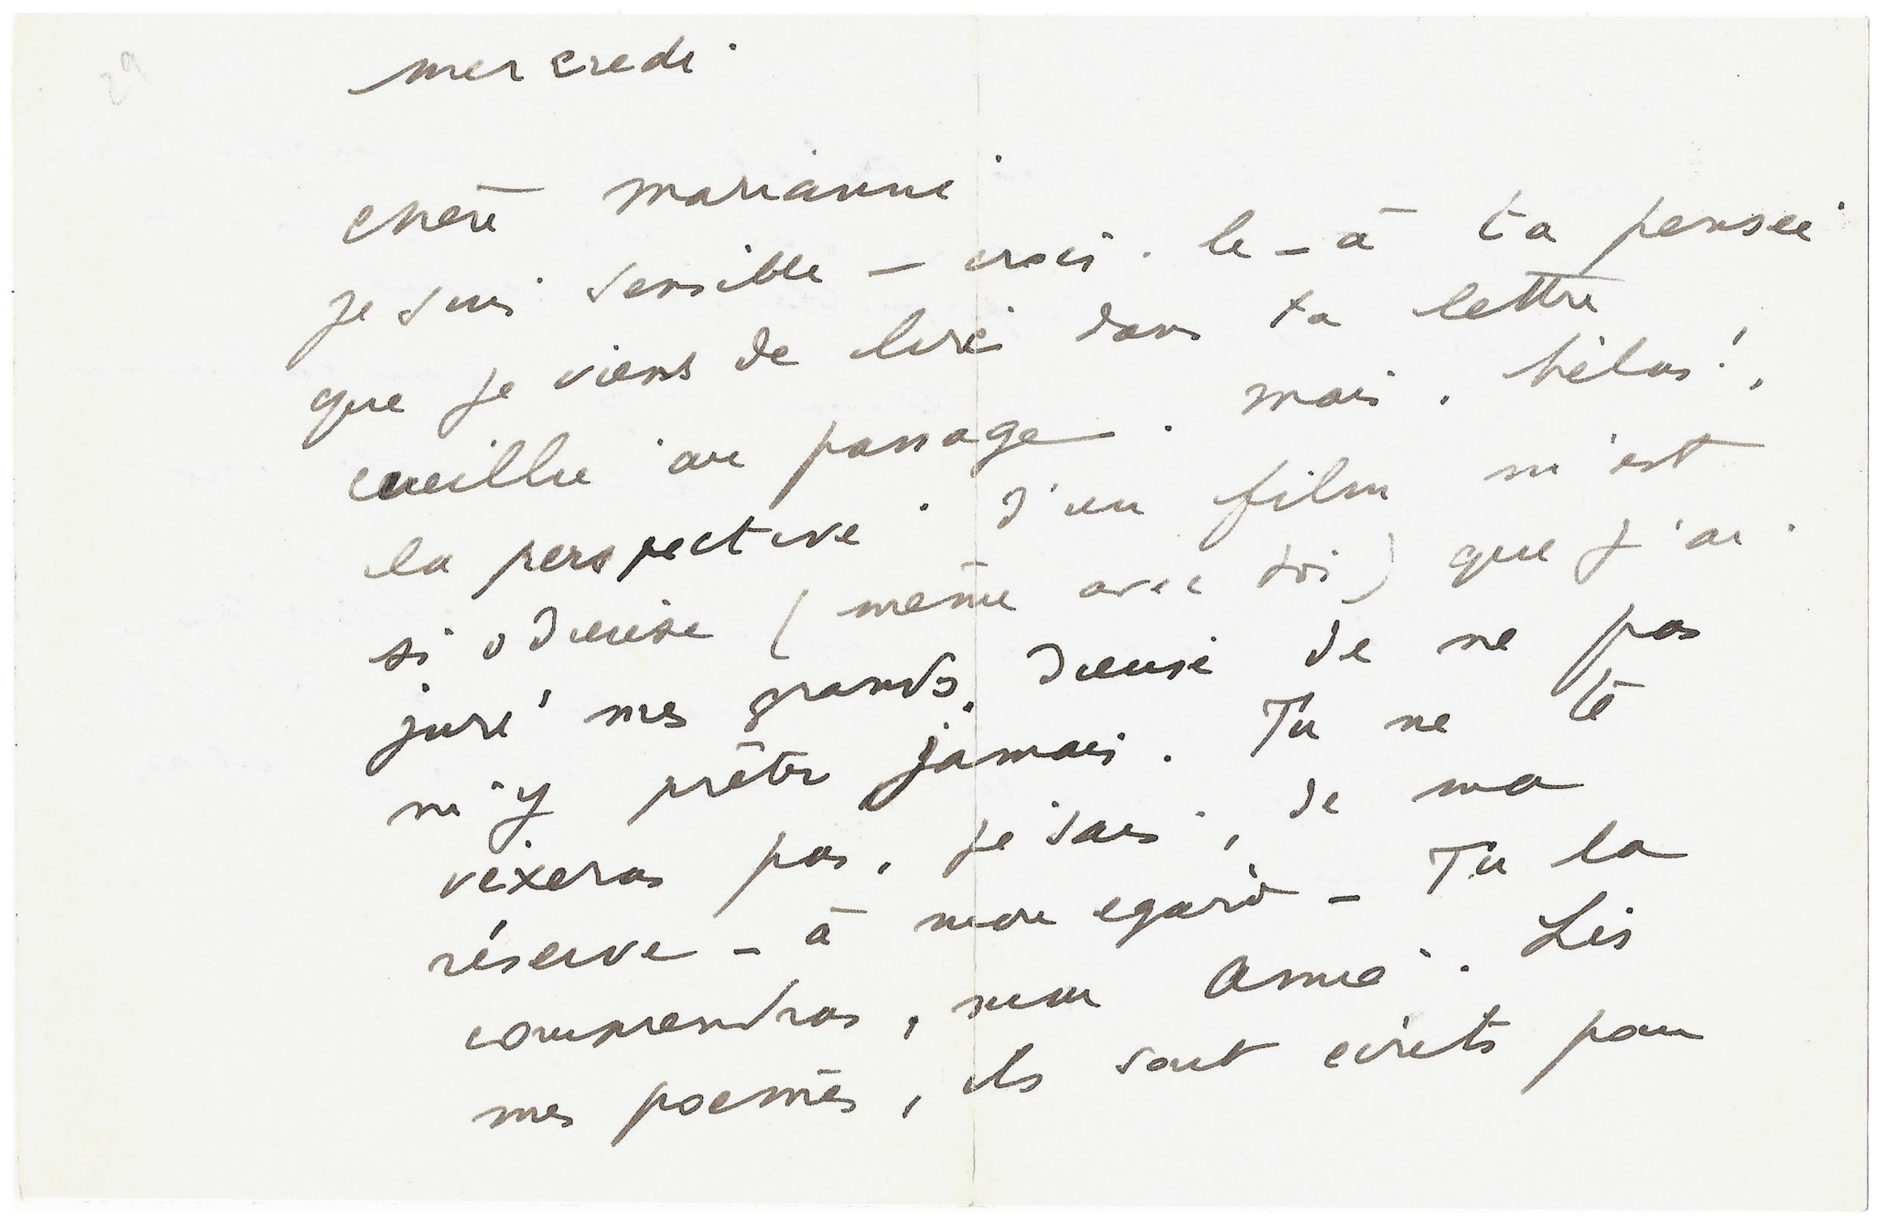 29
mercredi
chère Marianne
je suis sensible – crois-le – à ta pensée
que je viens de lire dans ta lettre
cueillie au passage. mais, hélas!,
la perspective d'un film m'est
si odieuse (même avec toi) que j'ai
juré mes grands dieux de ne pas
m'y prêter jamais. Tu ne te
vexeras pas, je sais, de ma
réserve – à mon égard – Tu la
comprendras, mon Amie. Lis
mes poèmes, ils sont écrits pour